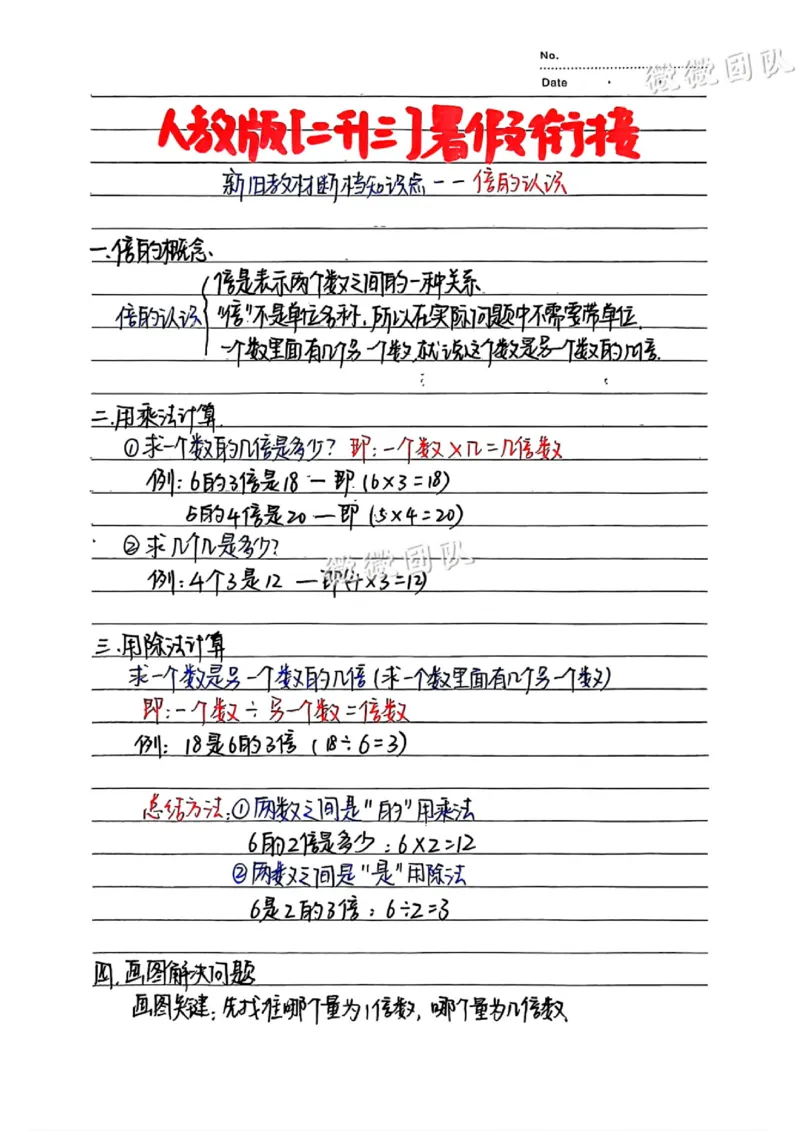 No.
Date
微微团队
人教版[二升三]暑假衔接
新旧教材断档知识点--倍的认识
一.倍的概念.
倍的认识
倍是表示两个数之间的一种关系.
"倍"不是单位名称,所以在实际问题中不需要带单位.
一个数里面有几个另一个数,就说这个数是另一个数的几倍.
二.用乘法计算.
①求一个数的几倍是多少?即:一个数×几=几倍数
例:6的3倍是18—即(6×3=18)
5的4倍是20—即(5×4=20)
②求几个几是多少?
微微团队
例:4个3是12—即(4×3=12)
三.用除法计算
求一个数是另一个数的几倍(求一个数里面有几个另一个数)
即:一个数÷另一个数=倍数
例:18是6的3倍(18÷6=3)
总结方法:①两数之间是"的"用乘法
6的2倍是多少:6×2=12
②两数之间是"是"用除法
6是2的3倍:6÷2=3
四.画图解决问题
画图关键:先找准哪个量为1倍数,哪个量为几倍数.